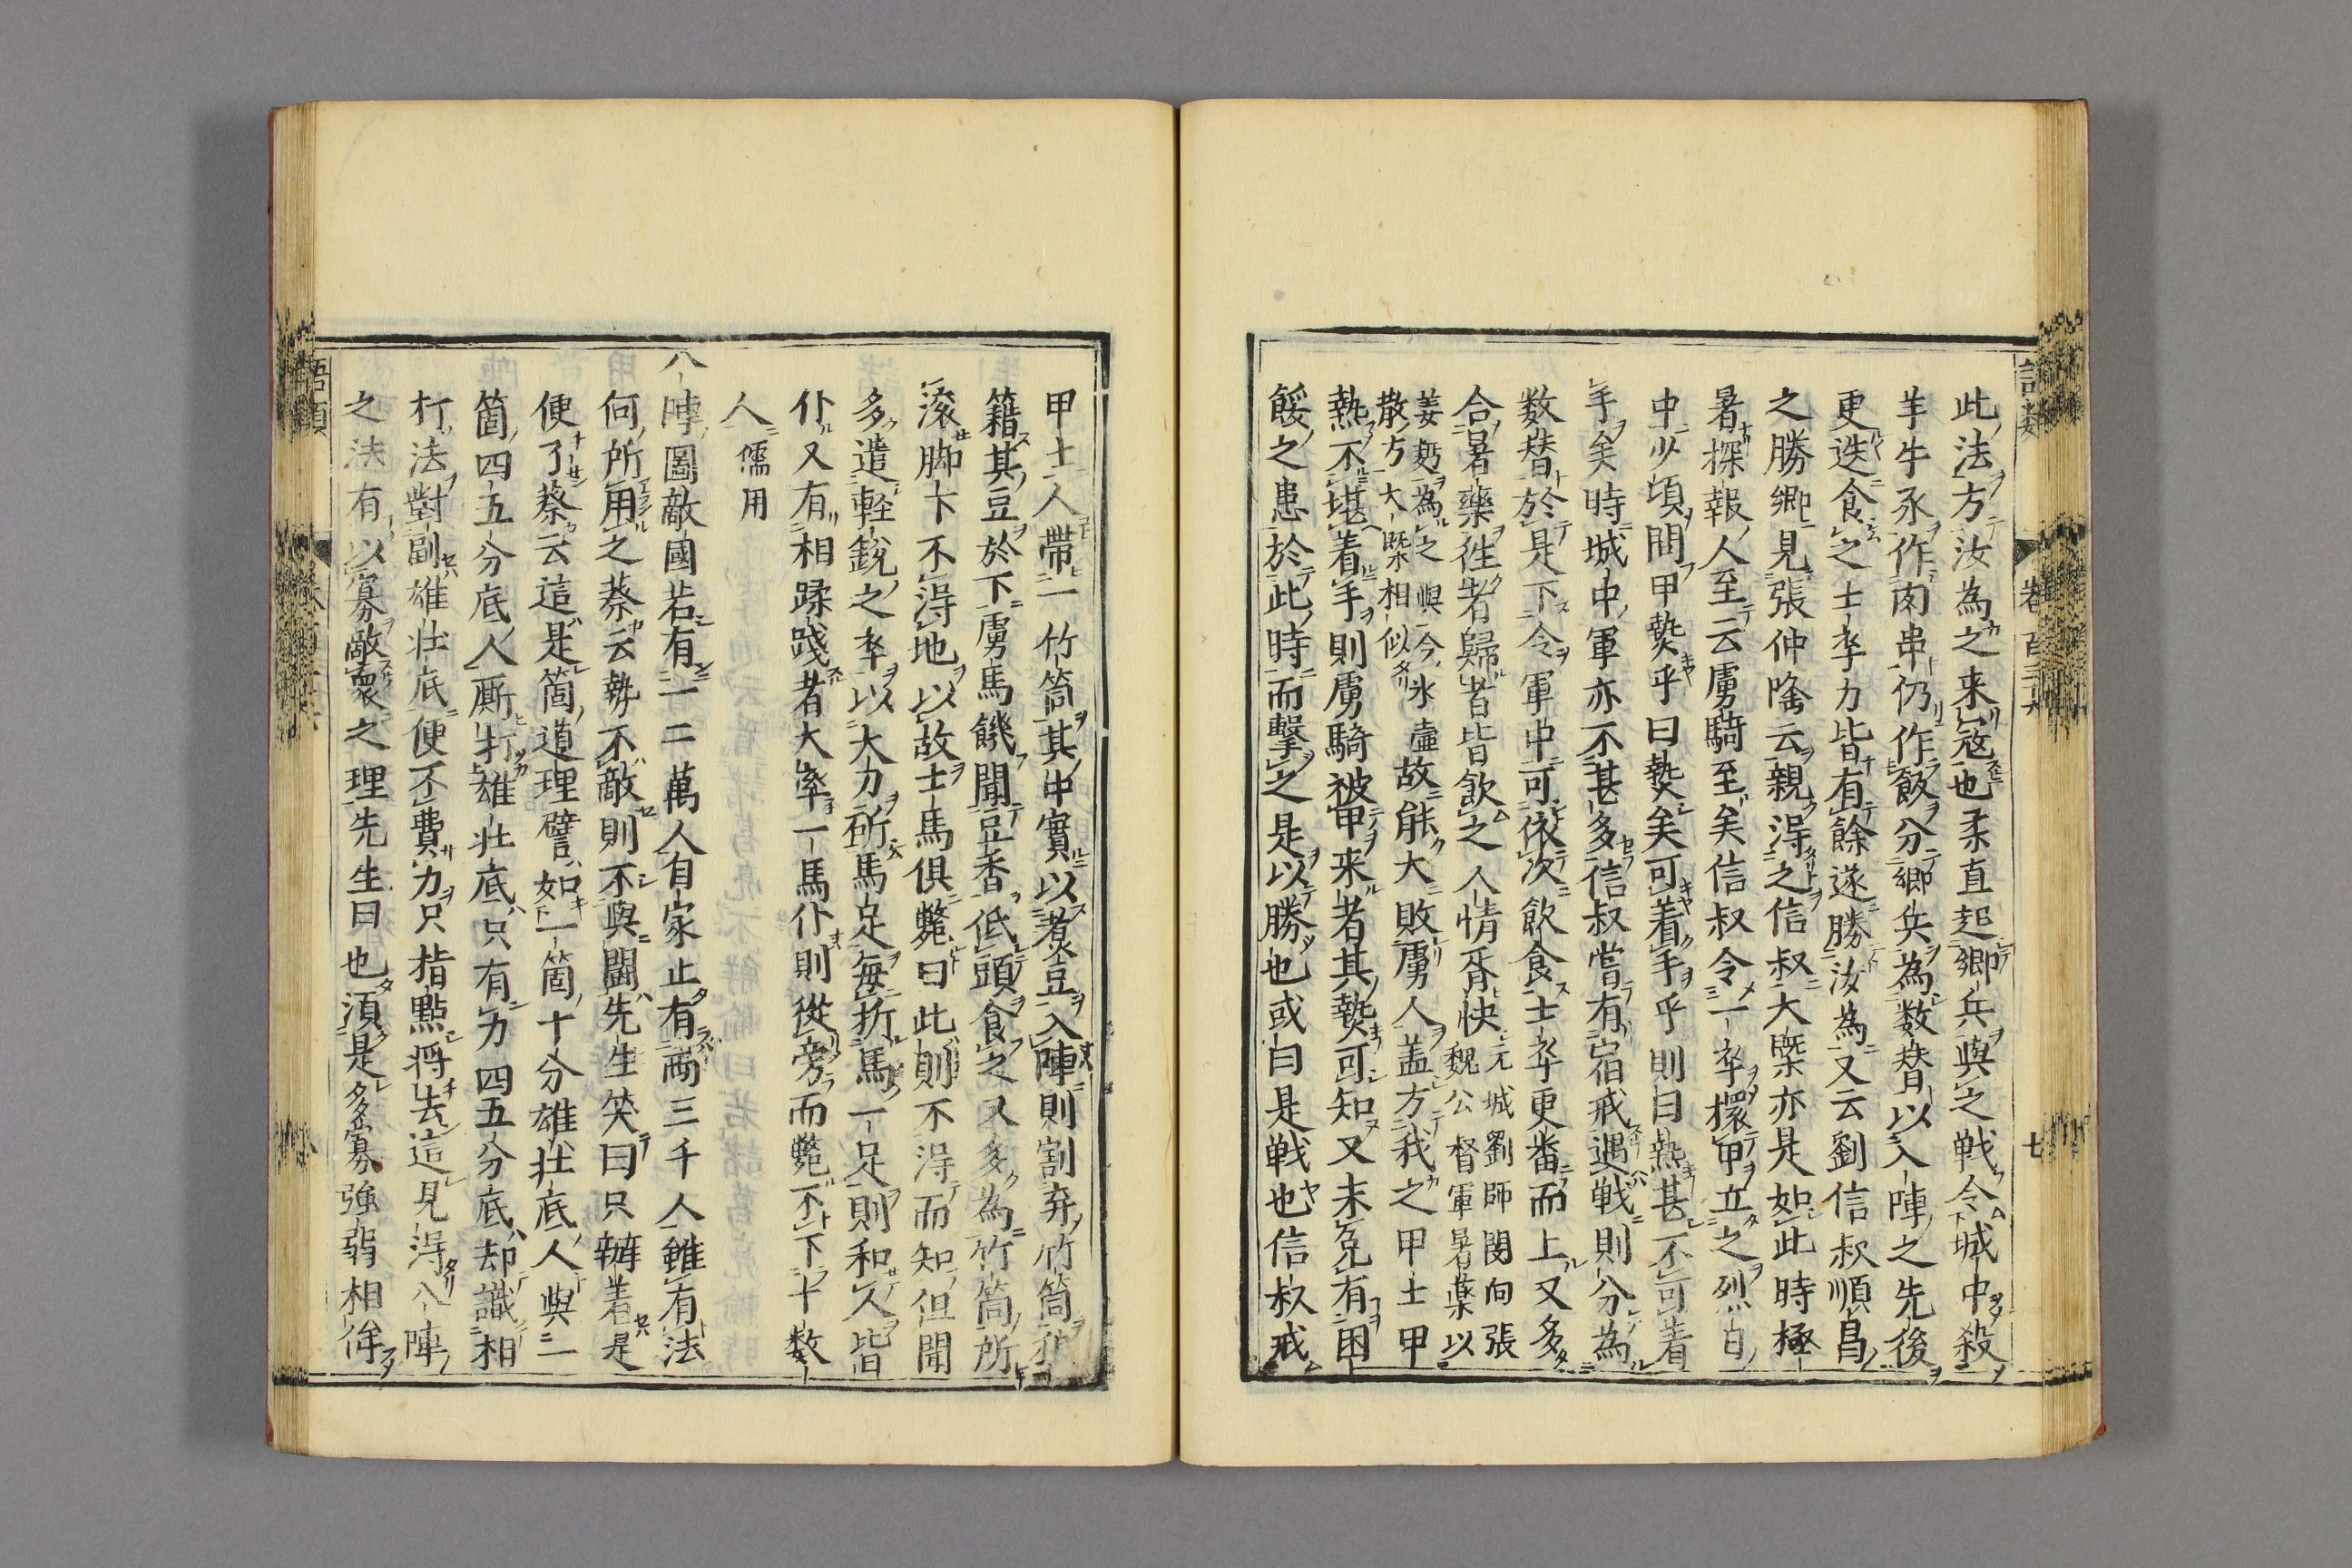 語類
卷百三十六
七
此法方汝為之来冦也柔直起郷兵與之戦令城中殺
羊牛豕作肉串仍作飯分郷兵為数替以入陣之先後
更迭食之士卒力皆有餘遂勝汝為又云劉信叔順昌
之勝郷見張仲隆云親淂之信叔大槩亦是如此時極
暑探報人至云虜騎至矣信叔令一卒擐甲立之烈日
中少頃問甲熱乎曰熱矣可着手乎則曰熱甚不可着
手矣時城中軍亦不甚多信叔嘗有宿戒遇戦則分為
数替於是下令軍中可依次飲食士卒更番而上又多
合暑藥徃者歸者皆飲之人情胥快元城劉師閔向張魏公督軍暑藥以
姜麪為之與今氷壺散方大槩相似故能大敗虜人盖方我之甲士甲
熱不堪着手則虜騎被甲来者其熱可知又未免有困
餒之患於此時而擊之是以勝也或曰是戦也信叔戒
甲士人帶一竹筒其中實以煑豆入陣則割弃竹筒狼
籍其豆於下虜馬饑聞豆香低頭食之又多為竹筒所
滚脚下不淂地以故士馬俱斃曰此則不淂而知但聞
多遣軽銳之卒以大刀斫馬足每折馬一足則和人皆
仆又有相蹂踐者大率一馬仆則從旁而斃不下十数
人儒用
八陣圖敵國若有一二萬人自家止有两三千人雖有法
何所用之蔡云勢不敵則不與鬬先生笑曰只辦着是
便了蔡云這是箇道理譬如一箇十分雄壮底人與一
箇四五分底人厮打雄壮底只有力四五分底却識相
打法對副雄壮底便不費力只指點将去這見淂八陣
之法有以寡敵衆之理先生曰也湏是多寡強弱相侔
語類